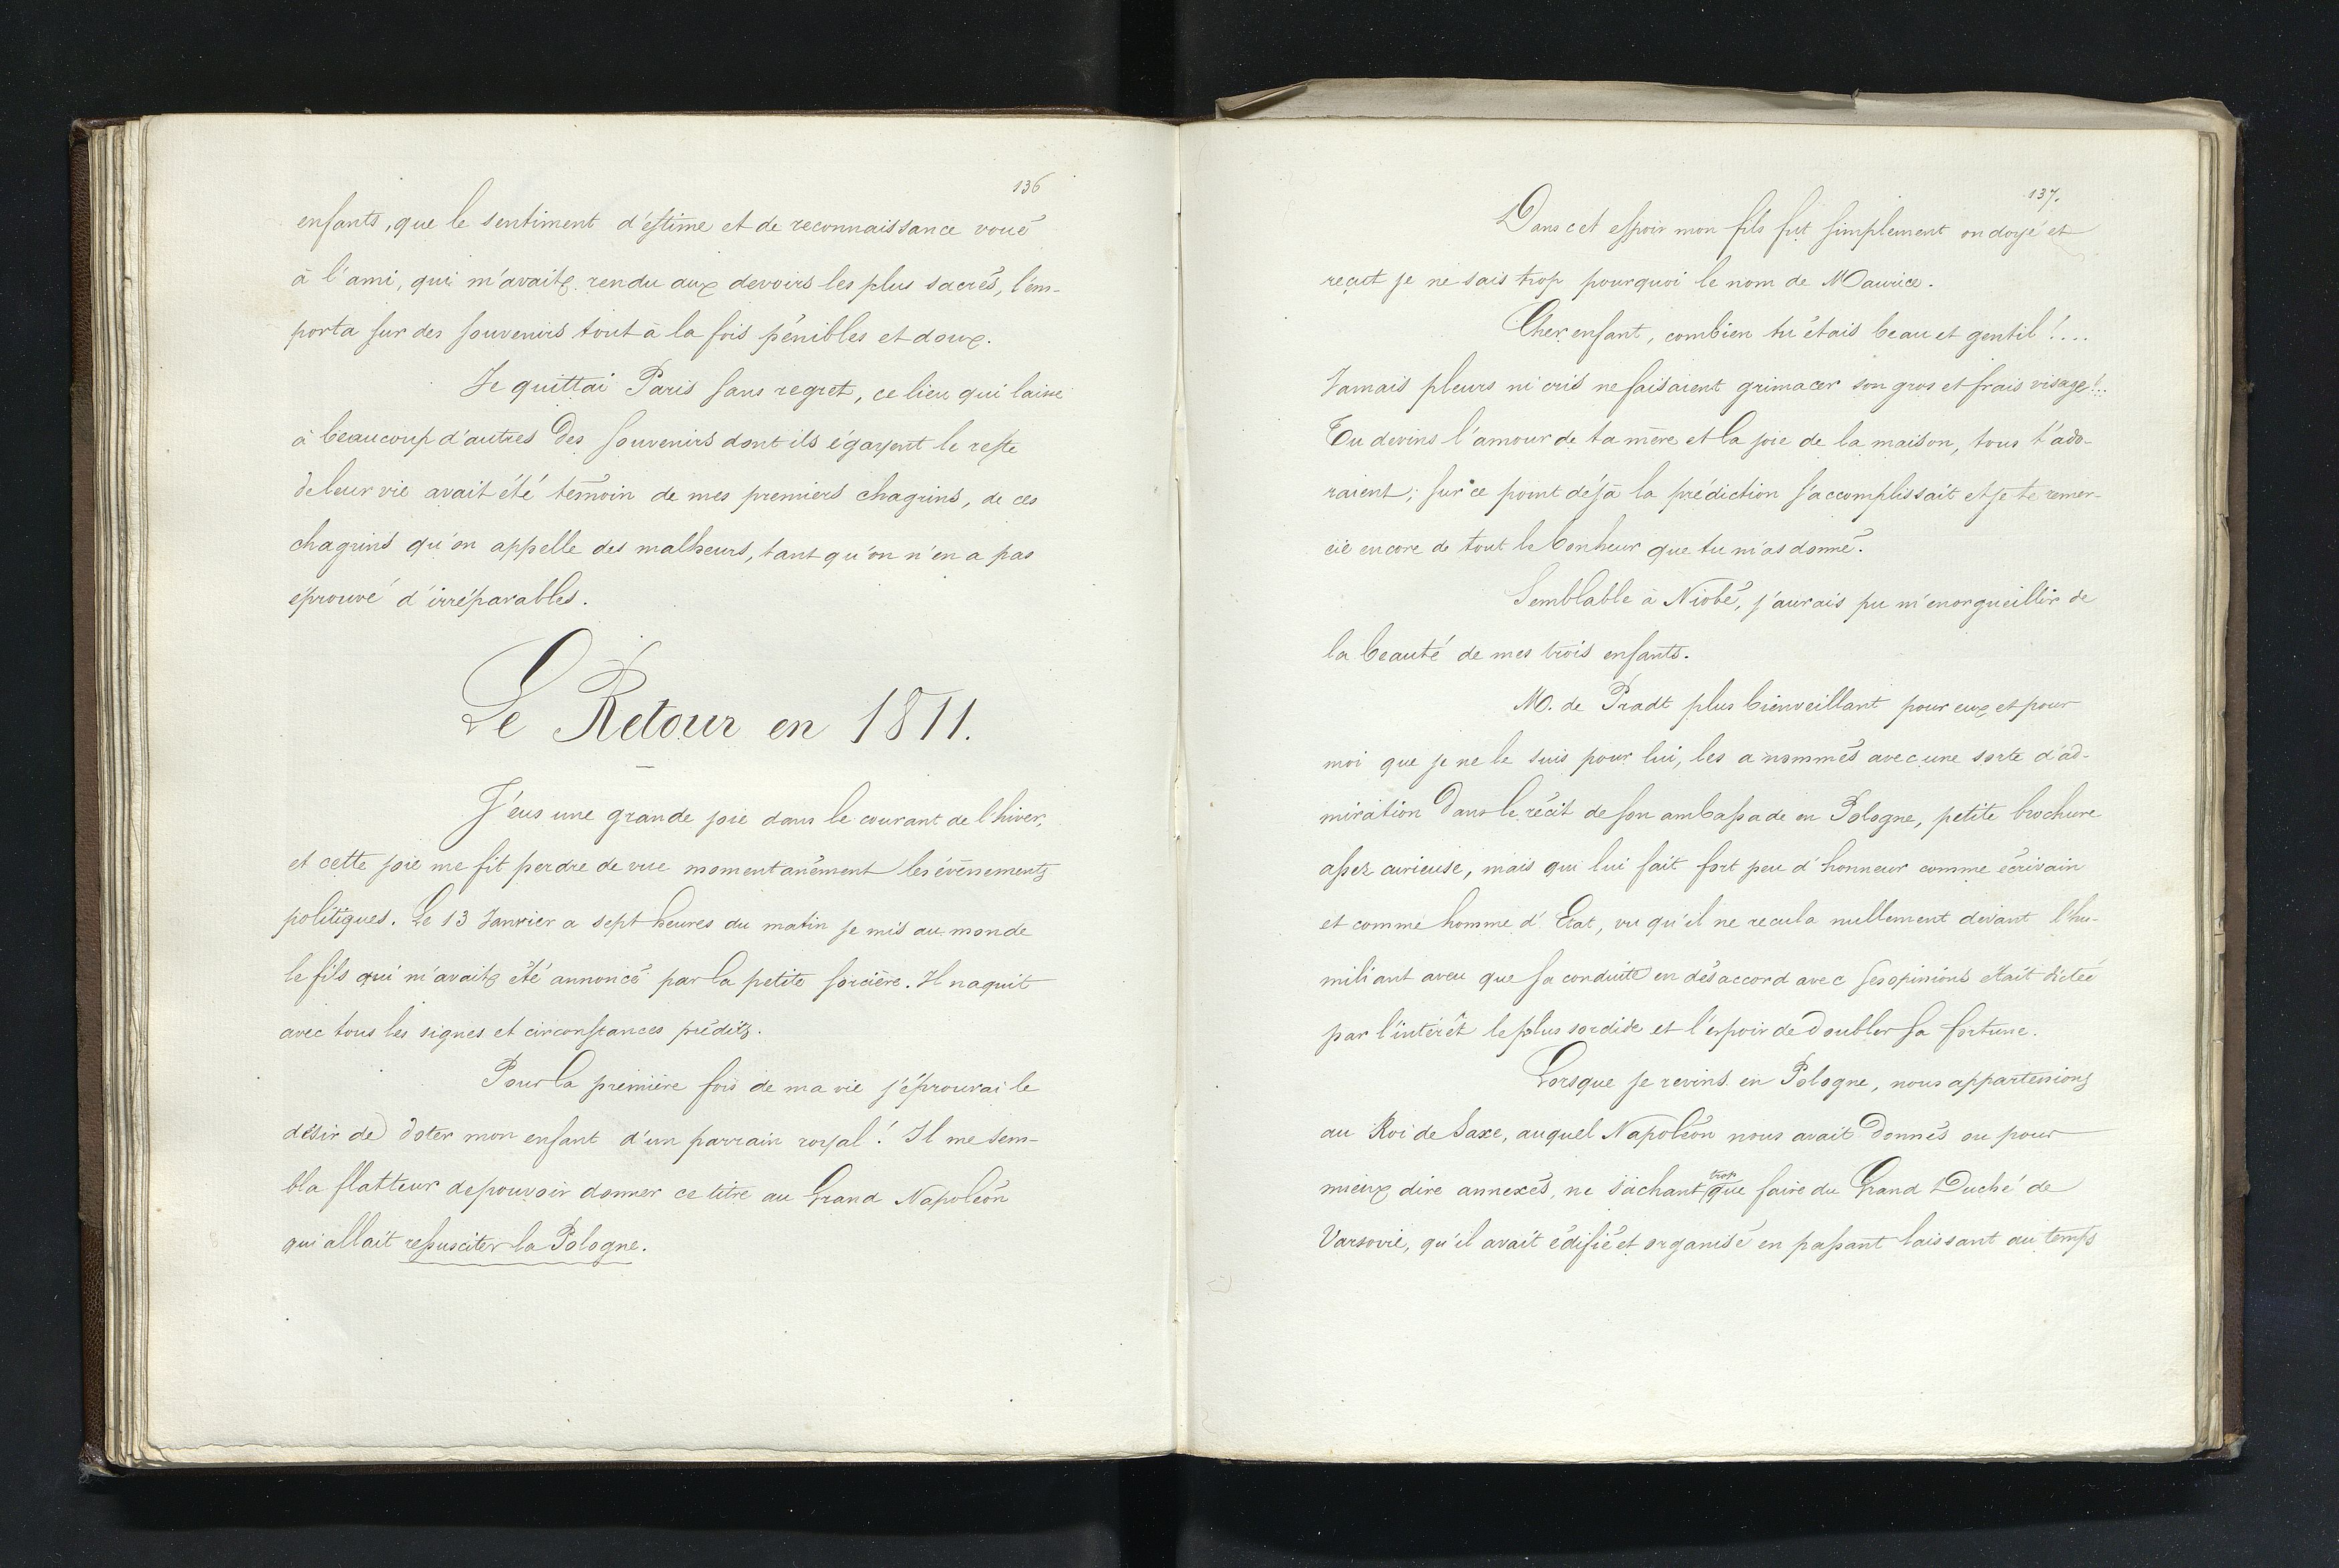 136
enfants, que le sentiment d'estime et de reconnaissance voué
à l'ami, qui m'avait rendu aux devoirs les plus sacrés, l'em-
porta sur des souvenirs tout à la fois pénibles et doux.
Je quittai Paris sans regret, ce lieu qui laisse
à beaucoup d'autres des souvenirs dont ils égayent le reste
de leur vie avait été témoin de mes premiers chagrins, de ces
chagrins qu'on appelle des malheurs, tant qu'on n'en a pas
éprouvé d'irréparables.
Le Retour en 1811.
J'eus une grande joie dans le courant de l'hiver,
et cette joie me fit perdre de vue momentanément les évènements
politiques. Le 13 Janvier a sept heures du matin je mis au monde
le fils qui m'avait été annoncé par la petite sorcière. Il naquit
avec tous les signes et circonstances prédits.
Pour la première fois de ma vie j'éprouvai le
désir de doter mon enfant d'un parrain royal! Il me sem-
bla flatteur de pouvoir donner ce titre au Grand Napoléon
qui allait ressusciter la Pologne.
137.
Dans cet espoir mon fils fut simplement ondoyé et
reçut je ne sais trop pourquoi le nom de Maurice.
Cher enfant, combien tu étais beau et gentil!....
Jamais pleurs ni cris ne faisaient grimacer son gros et frais visage!...
Tu devins l'amour de ta mère et la joie de la maison, tous t'ado-
raient; sur ce point déjà la prédiction s'accomplissait et je te remer-
cie encore de tout le bonheur que tu m'as donné.
Semblable à Niobé, j'aurais pu m'enorgueillir de
la beauté de mes trois enfants.
M. de Pradt plus bienveillant pour eux et pour
moi que je ne le suis pour lui, les a nommés avec une sorte d'ad-
miration dans le récit de son ambassade en Pologne, petite brochure
assez curieuse, mais qui lui fait fort peu d'honneur comme écrivain
et comme homme d'Etat, vu qu'il ne recula nullement devant l'hu-
miliant aveu que sa conduite en désaccord avec ses opinions était dictée
par l'intérêt le plus sordide et l'espoir de doubler sa fortune.
Lorsque je revins en Pologne, nous appartenions
au Roi de Saxe, auquel Napoléon nous avait donnés ou pour
mieux dire annexés, ne sachant trop que faire du Grand Duché de
Varsovie, qu'il avait édifié et organisé en passant laissant au temps